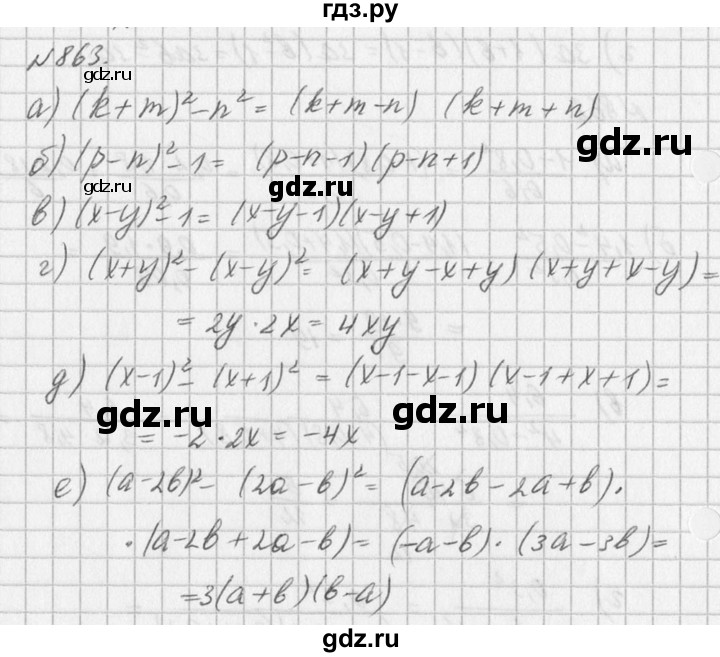 гдз.ру
№863.
gdz.ru
а) (k+m)²-n² = (k+m-n) (k+m+n)
gdz.ru
б) (p-n)²-1 = (p-n-1)(p-n+1)
gdz.ru
gdz.ru
в) (x-y)²-1 = (x-y-1)(x-y+1)
г) (x+y)²-(x-y)² = (x+y-x+y) (x+y+x-y) =
= 2y·2x = 4xy
д) (x-1)²-(x+1)² = (x-1-x-1) (x-1+x+1) =
gdz.ru
gdz.ru
= -2·2x = -4x
е) (a-2b)²- (2a-b)² = (a-2b-2a+b)·
·(a-2b+2a-b) = (-a-b)·(3a-3b) =
=3(a+b)(b-a)
gdz.ru
gdz.ru
гдз.ру